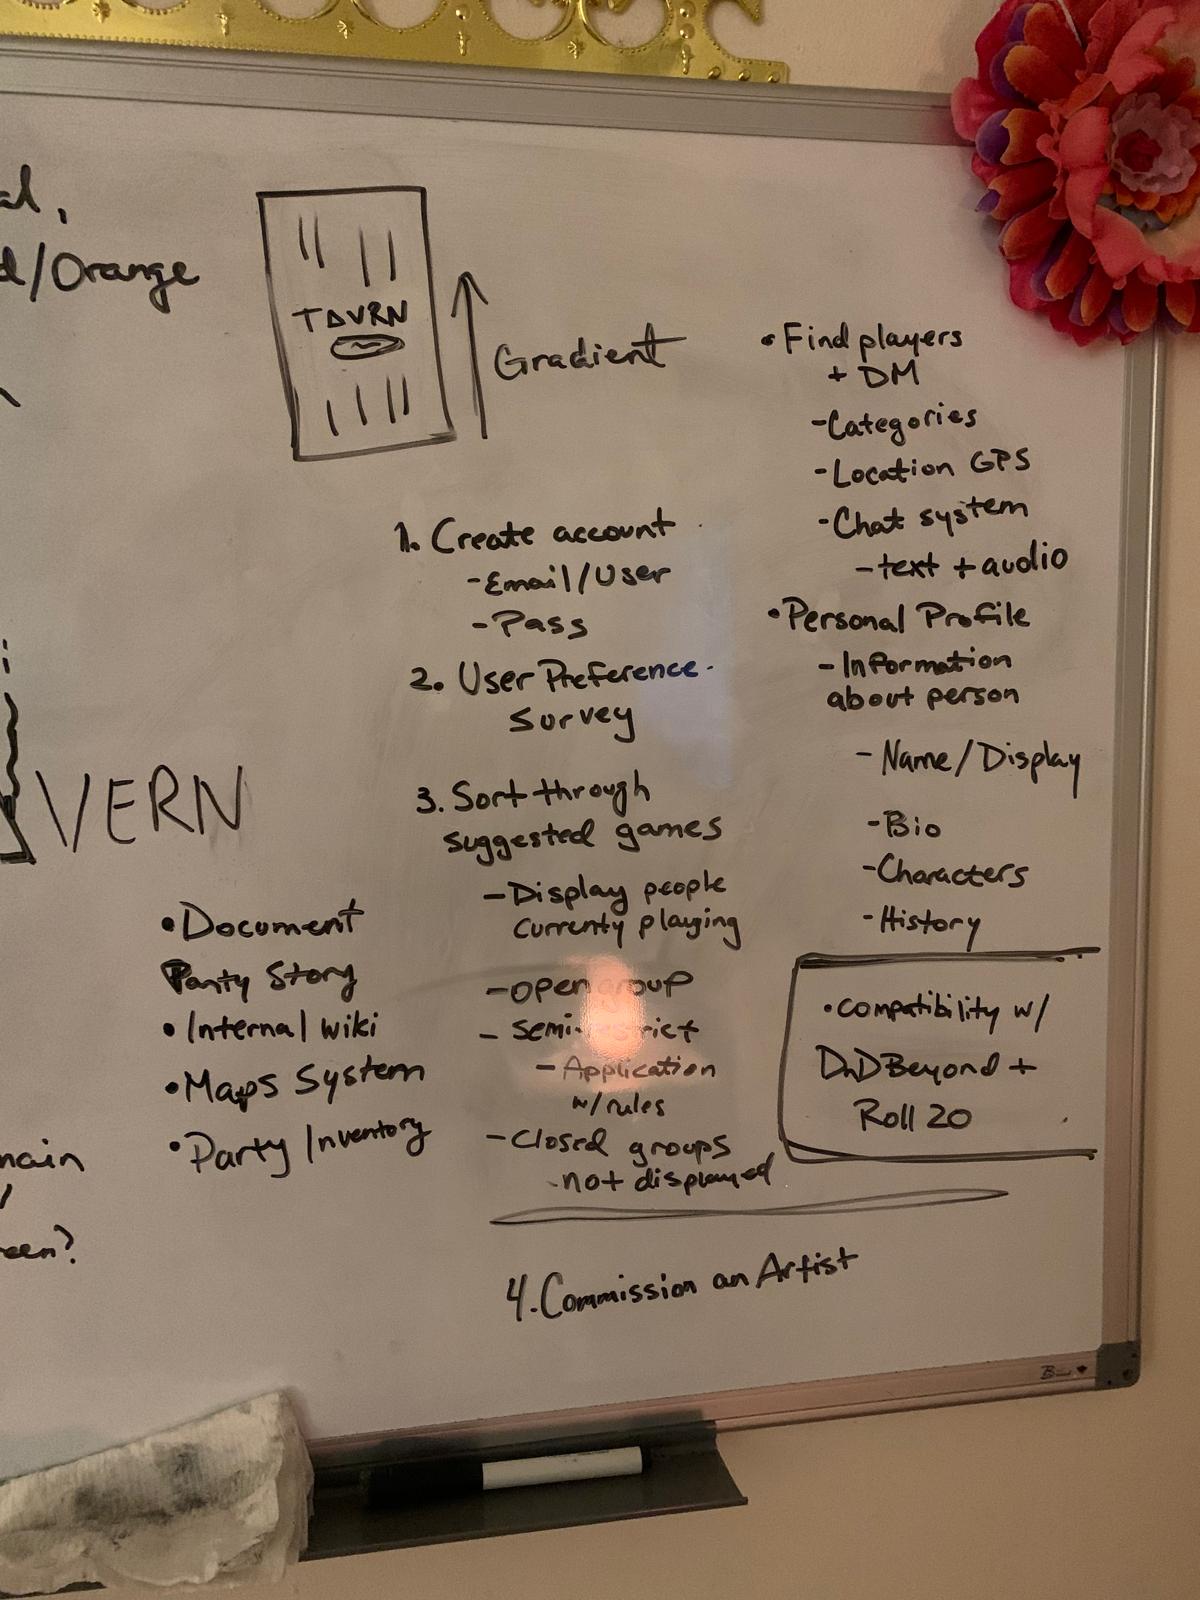 d/Orange
TAVRN
Gradient
VERN
• Document
Party Story
• Internal wiki
• Maps System
• Party Inventory
een?
1. Create account
- Email/User
- Pass
2. User Preference
Survey
3. Sort through
suggested games
- Display people
Currenty playing
- Open group
- Semi-restrict
- Application
w/rules
- Closed groups
- not displayed
4. Commission an Artist
• Find players
+ DM
- Categories
- Location GPS
- Chat system
- text + audio
• Personal Profile
- Information
about person
- Name/Display
- Bio
- Characters
- History
• compatibility w/
DnD Beyond +
Roll 20